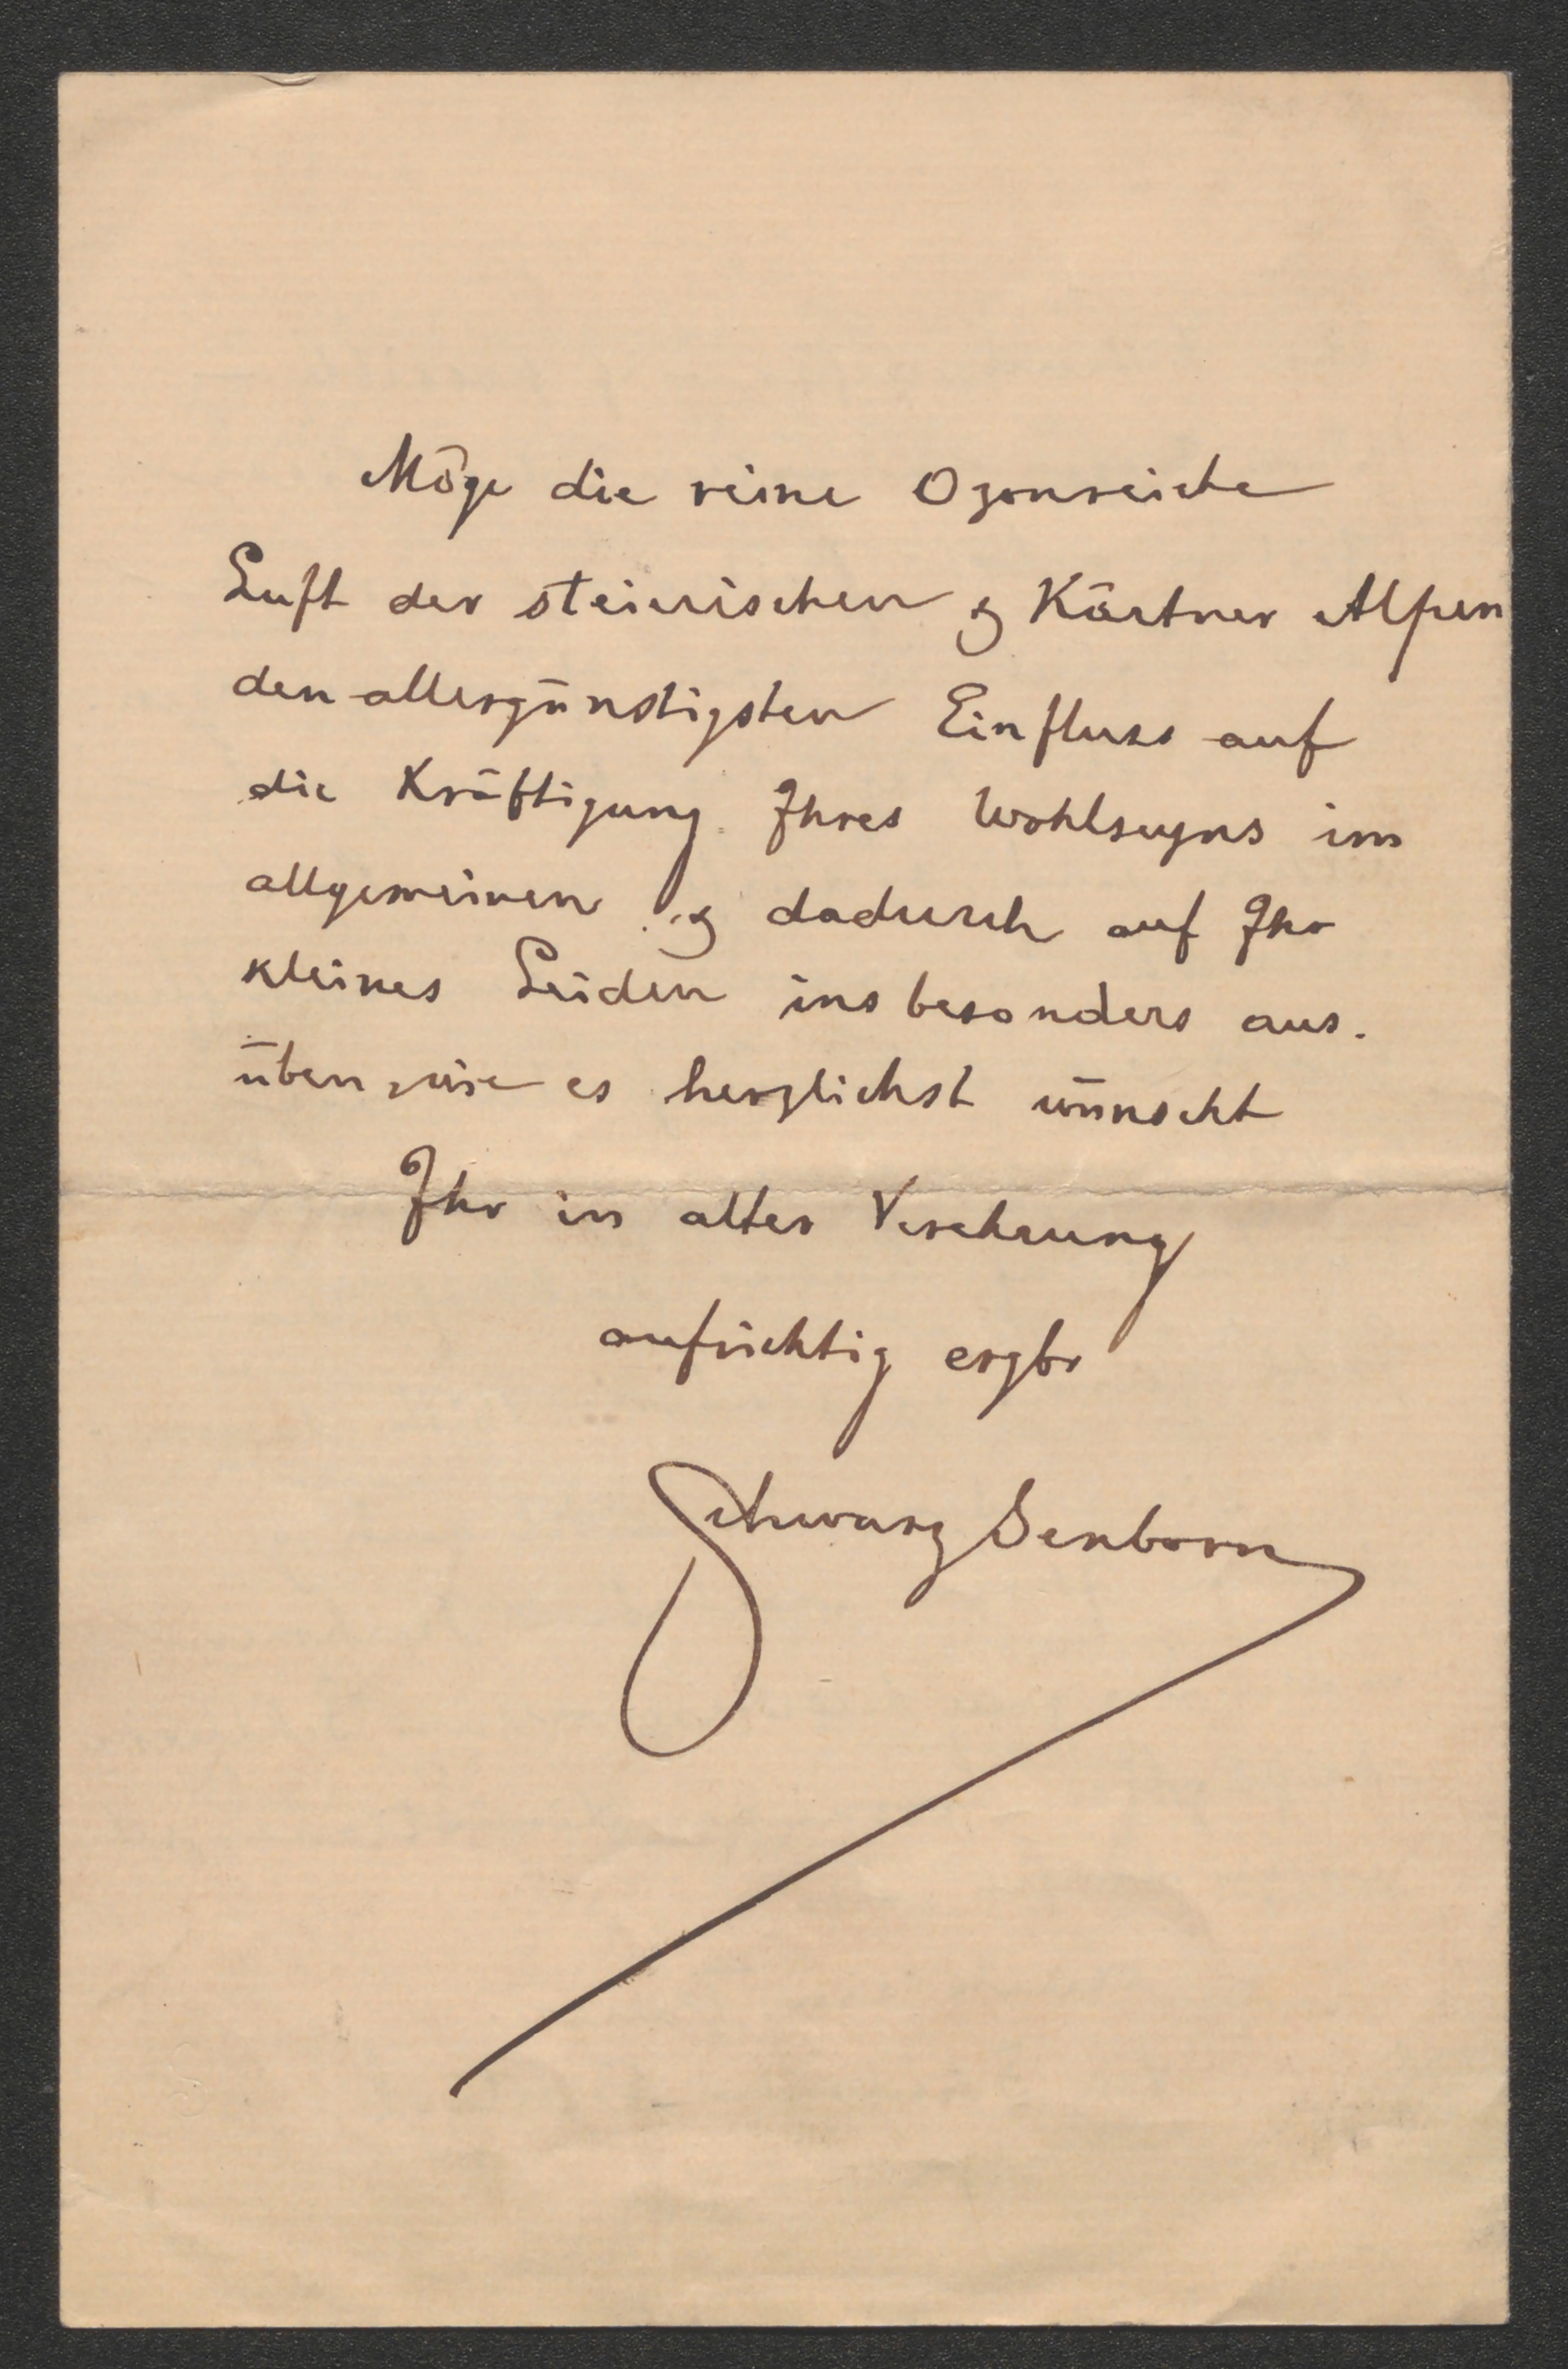 Möge die reine Ozonreiche
Luft der steierischen & Kärtner Alpen
den allergünstigsten Einfluss auf
die Kräftigung Ihres Wohlseyns im
allgemeinen & dadurch auf Ihr
kleines Leiden insbesonders aus-
üben, wie es herzlichst wünscht
Ihr in alter Verehrung
aufrichtig ergbr
Schwarz Senborn